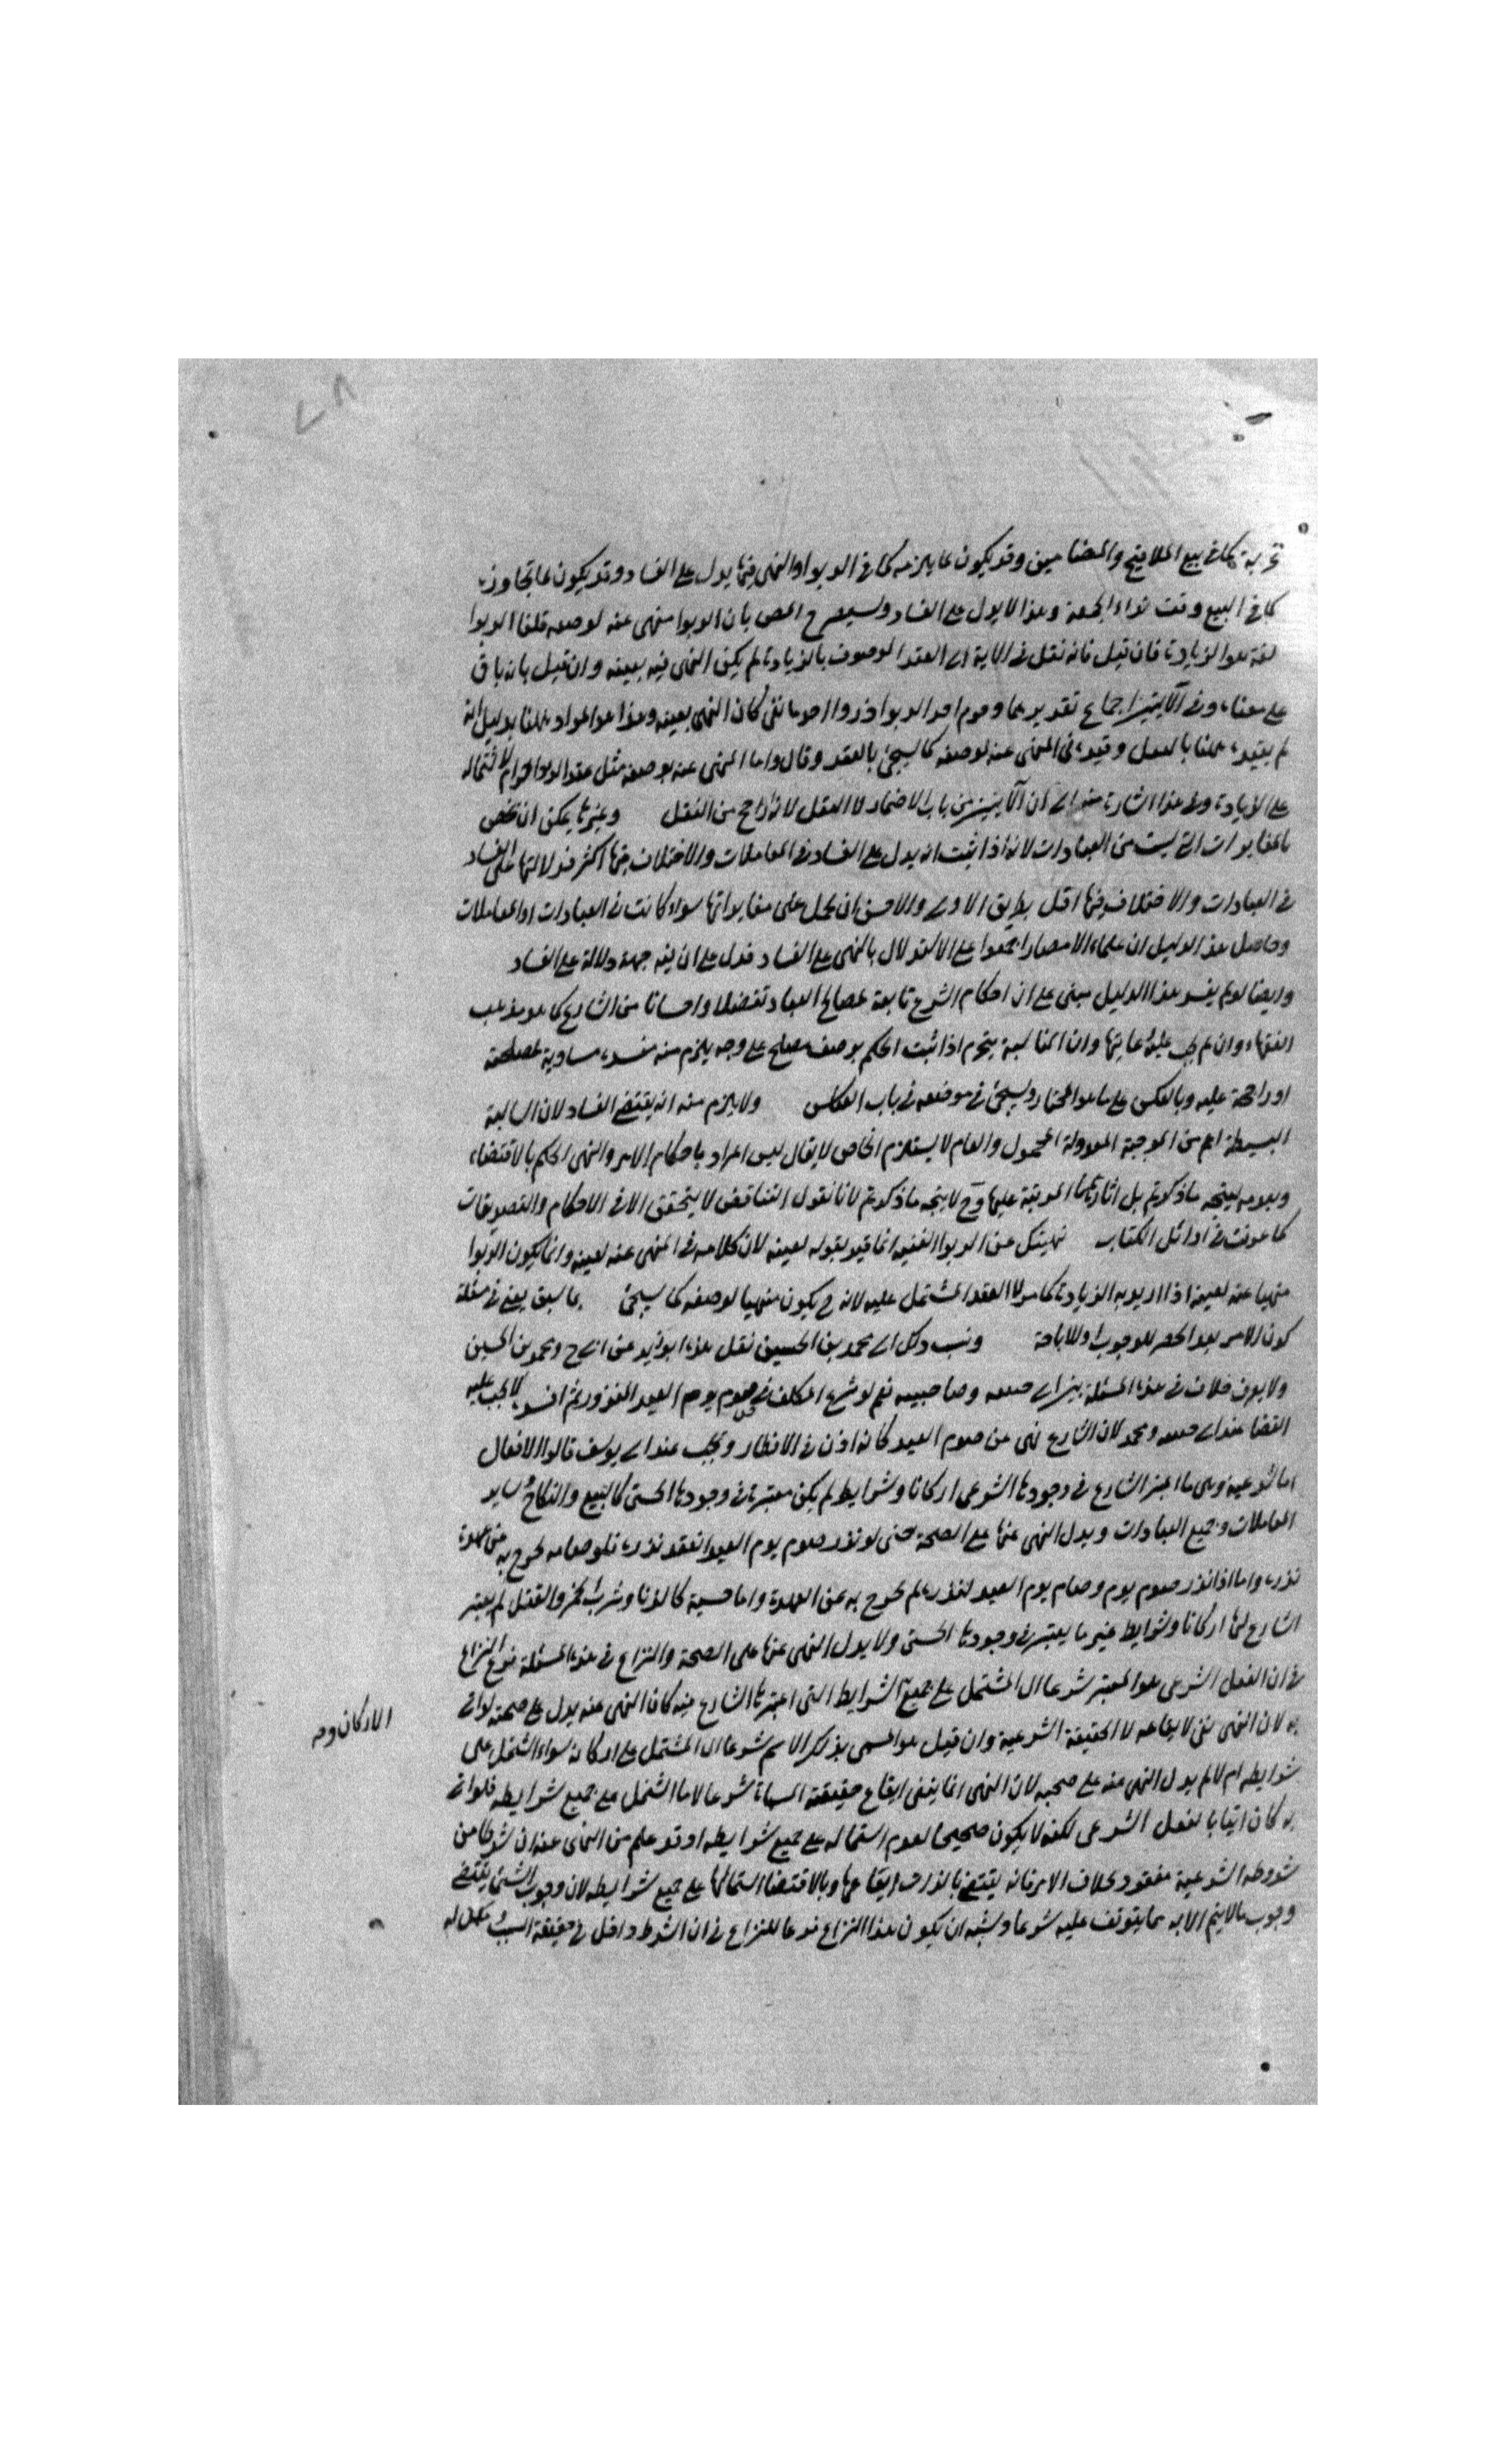 كما في بيع الملاقيح والمضامين وقد يكون عما يلزمه كما في الربوا والنهى فيها يدل على الفساد وقد يكون عما تجاوزه
كما في البيع وقت نداء الجمعة وهذا لا يدل على الفساد وسيصرح المص بان الربوا منهى عنه لوصفه قلنا الربوا
لغة هو الزيادة فان قيل فانه نقل في الاية الى العقد الموصوف بالزيادة لم يكن النهى فيه بعينه وان قيل بانه باق
على معناه وفي الآيتين اجماع تقديرهما وحرم اخذ الربوا وذروا اخذ ما بقى كان النهى بعينه وهذا هو المراد ههنا بدليل انه
لم يقيده ههنا بالعقد وقيده في المنهى عنه لوصفه كما سيجئ بالعقد وقال واما المنهى عنه بوصفه مثل عقد الربوا حرام لاشتماله
على الزيادة وفي هذا اشارة منه الى ان الآيتين من باب الاضمار لا النقل لانه ارجح من النقل وغيرها يمكن ان يخص
بالمغايرات التي ليست من العبادات لانه اذا ثبت انه يدل على الفساد في المعاملات والاختلاف فيها اكثر فدلالتها على الفساد
في العبادات والاختلاف فيها اقل بطريق الاولى والاحسن ان يحمل على مغايراتها سواء كانت في العبادات او المعاملات
وحاصل هذا الدليل ان علماء الامصار اجمعوا على الاستدلال بالنهى على الفساد فدل على ان فيه جهة دلالة على الفساد
وايضا لو لم يفسد هذا الدليل مبنى على ان احكام الشرع تابعة لمصالح العباد تفضلا واحسانا من الشارع كما هو مذهب
الفقهاء وان لم يجب عليه رعايتها وان المناسبة ينخرم اذا ثبت الحكم بوصف مصلح على وجه يلزم منه مفسدة مساوية لمصلحته
او راجحة عليه وبالعكس على ما هو المختار وسيجئ في موضعه في باب القياس ولا يلزم منه انه يقتضى الفساد لان السالبة
البسيطة اعم من الموجبة المعدولة المحمول والعام لا يستلزم الخاص لا يقال ليس المراد باحكام الامر والنهى الحكم بالاقتضاء
وبعدمه ليتجه ما ذكرتم بل اثارهما المرتبة عليهما وح لا يتجه ما ذكرتم لانا نقول التناقض لا يتحقق الا في الاحكام والتصديقات
كما عرفت في اوائل الكتاب نهيتك عن الربوا لعينه انما قيد بقوله لعينه لان كلامه في المنهى عنه لعينه وانما يكون الربوا
منهيا عنه لعينه اذا اريد به الزيادة كما مر لا العقد المشتمل عليه لانه ح يكون منهيا لوصفه كما سيجئ بما سبق يعنى في مسئلة
كون الامر بعد الحظر للوجوب او للاباحة ونسب ذلك الى محمد بن الحسين نقل هذا ابو زيد عن ابى ح ومحمد بن الحسين
ولا يعرف خلاف في هذه المسئلة بين ابى حنيفه وصاحبيه نعم لو شرع المكلف في صوم يوم العيد المنذور ثم افسده لا يجب عليه
القضا عند ابى حنيفه ومحمد لان الشارع نهى عن صوم العيد كانه اذن في الافطار ويجب عند ابى يوسف قالوا الافعال
اما شرعية وهى ما اعتبر الشارع في وجودها الشرعى اركانا وشرايط لم يكن معتبرة في وجودها الحسى كالبيع والنكاح وساير
المعاملات وجميع العبادات ويدل النهى عنها على الصحة حتى لو نذر صوم يوم العيد انعقد نذره فلو صامه يخرج به عن عهدة
نذره واما اذا نذر صوم يوم وصام يوم العيد لنذره لم يخرج به عن العهدة واما حسية كالزنا وشرب الخمر والقتل لم يعتبر
الشارع لها اركانا وشرايط غير ما يعتبر في وجودها الحسى ولا يدل النهى عنها على الصحة والنزاع في هذه المسئلة فرع النزاع
في ان الفعل الشرعى هو المعتبر شرعا اى المشتمل على جميع الشرايط التى اعتبرها الشارع فيه كان النهى عنه يدل على صحته لو اتى
به لان النهى نفى لايقاعه لا الحقيقة الشرعية وان قيل هو المسمى بذلك الاسم شرعا اى المشتمل على اركانه سواء اشتمل على
شرايطه ام لا لم يدل النهى عنه على صحته لان النهى انما ينفى ايقاع حقيقته المسماة شرعا لا ما اشتمل على جميع شرايطه فلو اتى
به كان اتيا بالفعل الشرعى لكنه لا يكون صحيحا لعدم اشتماله على جميع شرايطه او قد علم من النهى عنه ان شرطا من
شروطه الشرعية مفقود بخلاف الامر فانه يقتضى بالذات ايقاعها وبالاقتضا اشتمالها على جميع شرايطه لان وجوب الشئ يقتضى
وجوب ما لا يتم الا به مما يتوقف عليه شرعا ويشبه ان يكون هذا النزاع فرعا للنزاع في ان الشرط داخل في حقيقة السبب
الاركان و